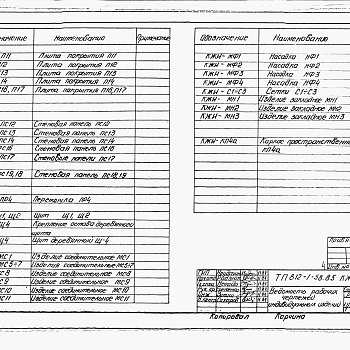 начение Наименование Примечание
П11 Плита покрытия П11
П12 Плита покрытия П12
П13 Плита покрытия П13
П14 Плита покрытия П14
П16, П17 Плита покрытия П16, П17
ПС12 Стеновая панель ПС12
ПС13 Стеновая панель ПС13
ПС14 Стеновая панель ПС14
ПС16 Стеновая панель ПС16
ПС17 Стеновая панель ПС17
ПС18,19 Стеновая панель ПС18,19
ПР4 Перемычка ПР4
Щ1, Щ2 Щит Щ1, Щ2
Щ4 Крепление остова деревянного
щита
Щ4 Щит деревянный Щ-4
МС1 Изделие соединительное МС1
МС5÷7 Изделия соединительные МС5÷7
МС8 Изделие соединительное МС8
МС9 Изделие соединительное МС9
МС10 Изделие соединительное МС10
МС11 Изделие соединительное МС11
Обозначение Наименование
КЖИ- НФ1 Насадка НФ1
КЖИ- НФ2 Насадка НФ2
КЖИ- НФ3 Насадка НФ3
КЖИ- НФ4 Насадка НФ4
КЖИ- С1÷С3 Сетки С1÷С3
КЖИ- МН1 Изделие закладное МН1
КЖИ- МН2 Изделие закладное МН2
КЖИ- МН3 Изделие закладное МН3
КЖИ-КП4а Каркас пространственны
КП4а
ТП 812-1-58.85 КЖ
Ведомость рабочих
чертежей
индивидуальных изделий
Копировал Карчина